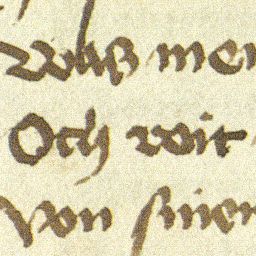 Waß men
Och wit
Von sinen